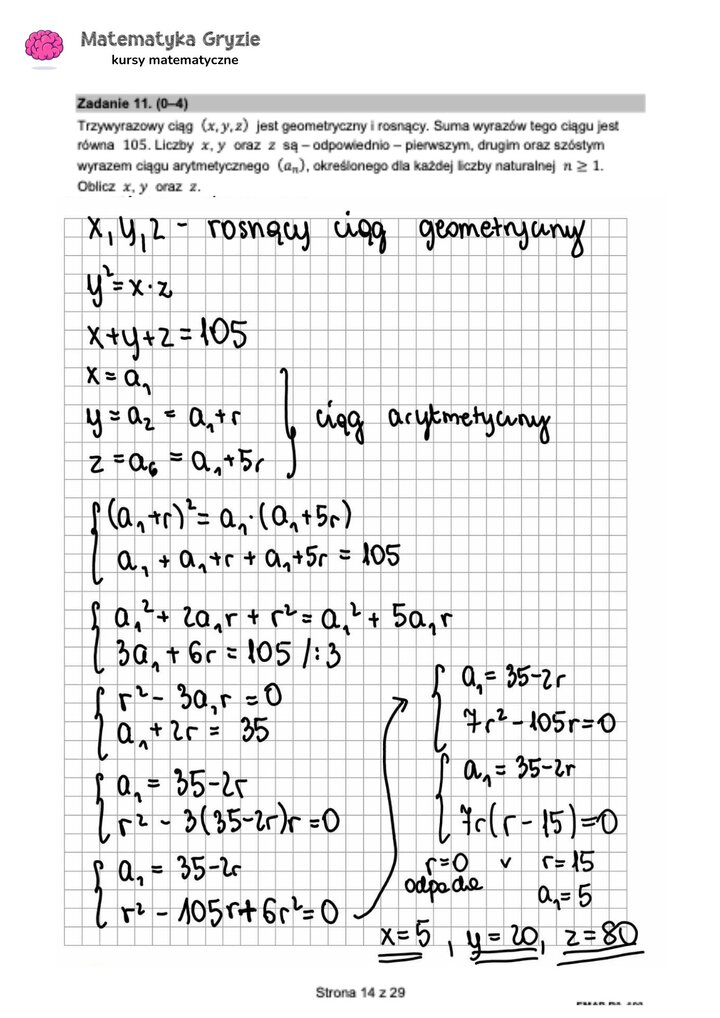 Matematyka Gryzie
kursy matematyczne
Zadanie 11. (0–4)
Trzywyrazowy ciąg (x, y, z) jest geometryczny i rosnący. Suma wyrazów tego ciągu jest
równa 105. Liczby x, y oraz z są – odpowiednio – pierwszym, drugim oraz szóstym
wyrazem ciągu arytmetycznego (aₙ), określonego dla każdej liczby naturalnej n ≥ 1.
Oblicz x, y oraz z.
x, y, z - rosnący ciąg geometryczny
y² = x · z
x + y + z = 105
x = a₁
y = a₂ = a₁ + r
z = a₆ = a₁ + 5r
ciąg arytmetyczny
(a₁+r)² = a₁·(a₁+5r)
a₁ + a₁+r + a₁+5r = 105
a₁² + 2a₁r + r² = a₁² + 5a₁r
3a₁ + 6r = 105 /:3
r² - 3a₁r = 0
a₁ + 2r = 35
a₁ = 35-2r
r² - 3(35-2r)r = 0
a₁ = 35-2r
r² - 105r + 6r² = 0
a₁ = 35-2r
7r² - 105r = 0
a₁ = 35-2r
7r(r - 15) = 0
r=0 v r=15
odpada
a₁ = 5
x = 5, y = 20, z = 80
Strona 14 z 29